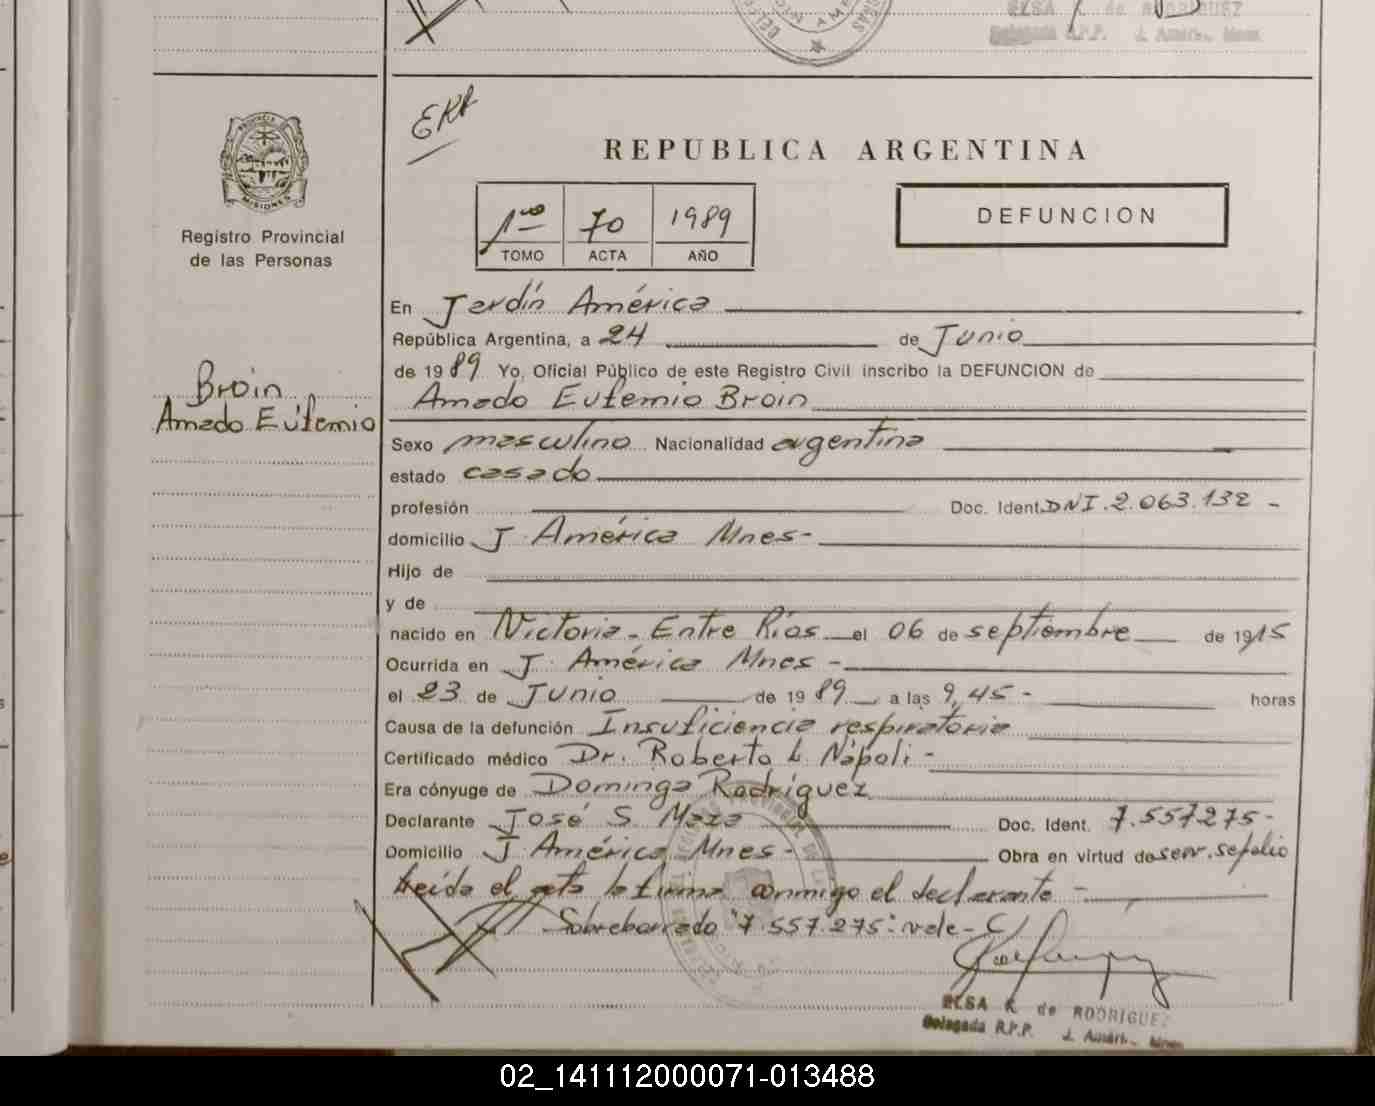 ELSA K. de RODRIGUEZ
Delegada R.P.P. J. Améri., Mnes.
ERA
PROVINCIA D
MISIONES
Registro Provincial
de las Personas
REPUBLICA ARGENTINA
1ro 70 1989
TOMO ACTA AÑO
DEFUNCION
Broin
Amado Eufemio
En Jardín América
República Argentina, a 24 de Junio
de 1989 Yo, Oficial Público de este Registro Civil inscribo la DEFUNCION de
Amado Eufemio Broin
Sexo masculino Nacionalidad argentina
estado casado
profesión Doc. Ident. DNI.2.063.132 -
domicilio J. América Mnes-
Hijo de
y de
nacido en Victoria - Entre Ríos el 06 de septiembre de 1915
Ocurrida en J. América Mnes -
el 23 de Junio de 1989 a las 9,45 - horas
Causa de la defunción Insuficiencia respiratoria
Certificado médico Dr. Roberto L. Nápoli -
Era cónyuge de Dominga Rodríguez
Declarante José S. Maza Doc. Ident. 7.557275-
Domicilio J. América Mnes - Obra en virtud de serv. sepelio
Leída el acta la firma conmigo el declarante -
Sobreborrado "7.557.275": vale-
ELSA K. de RODRIGUEZ
Delegada R.P.P. J. Améri., Mnes.
02_141112000071-013488